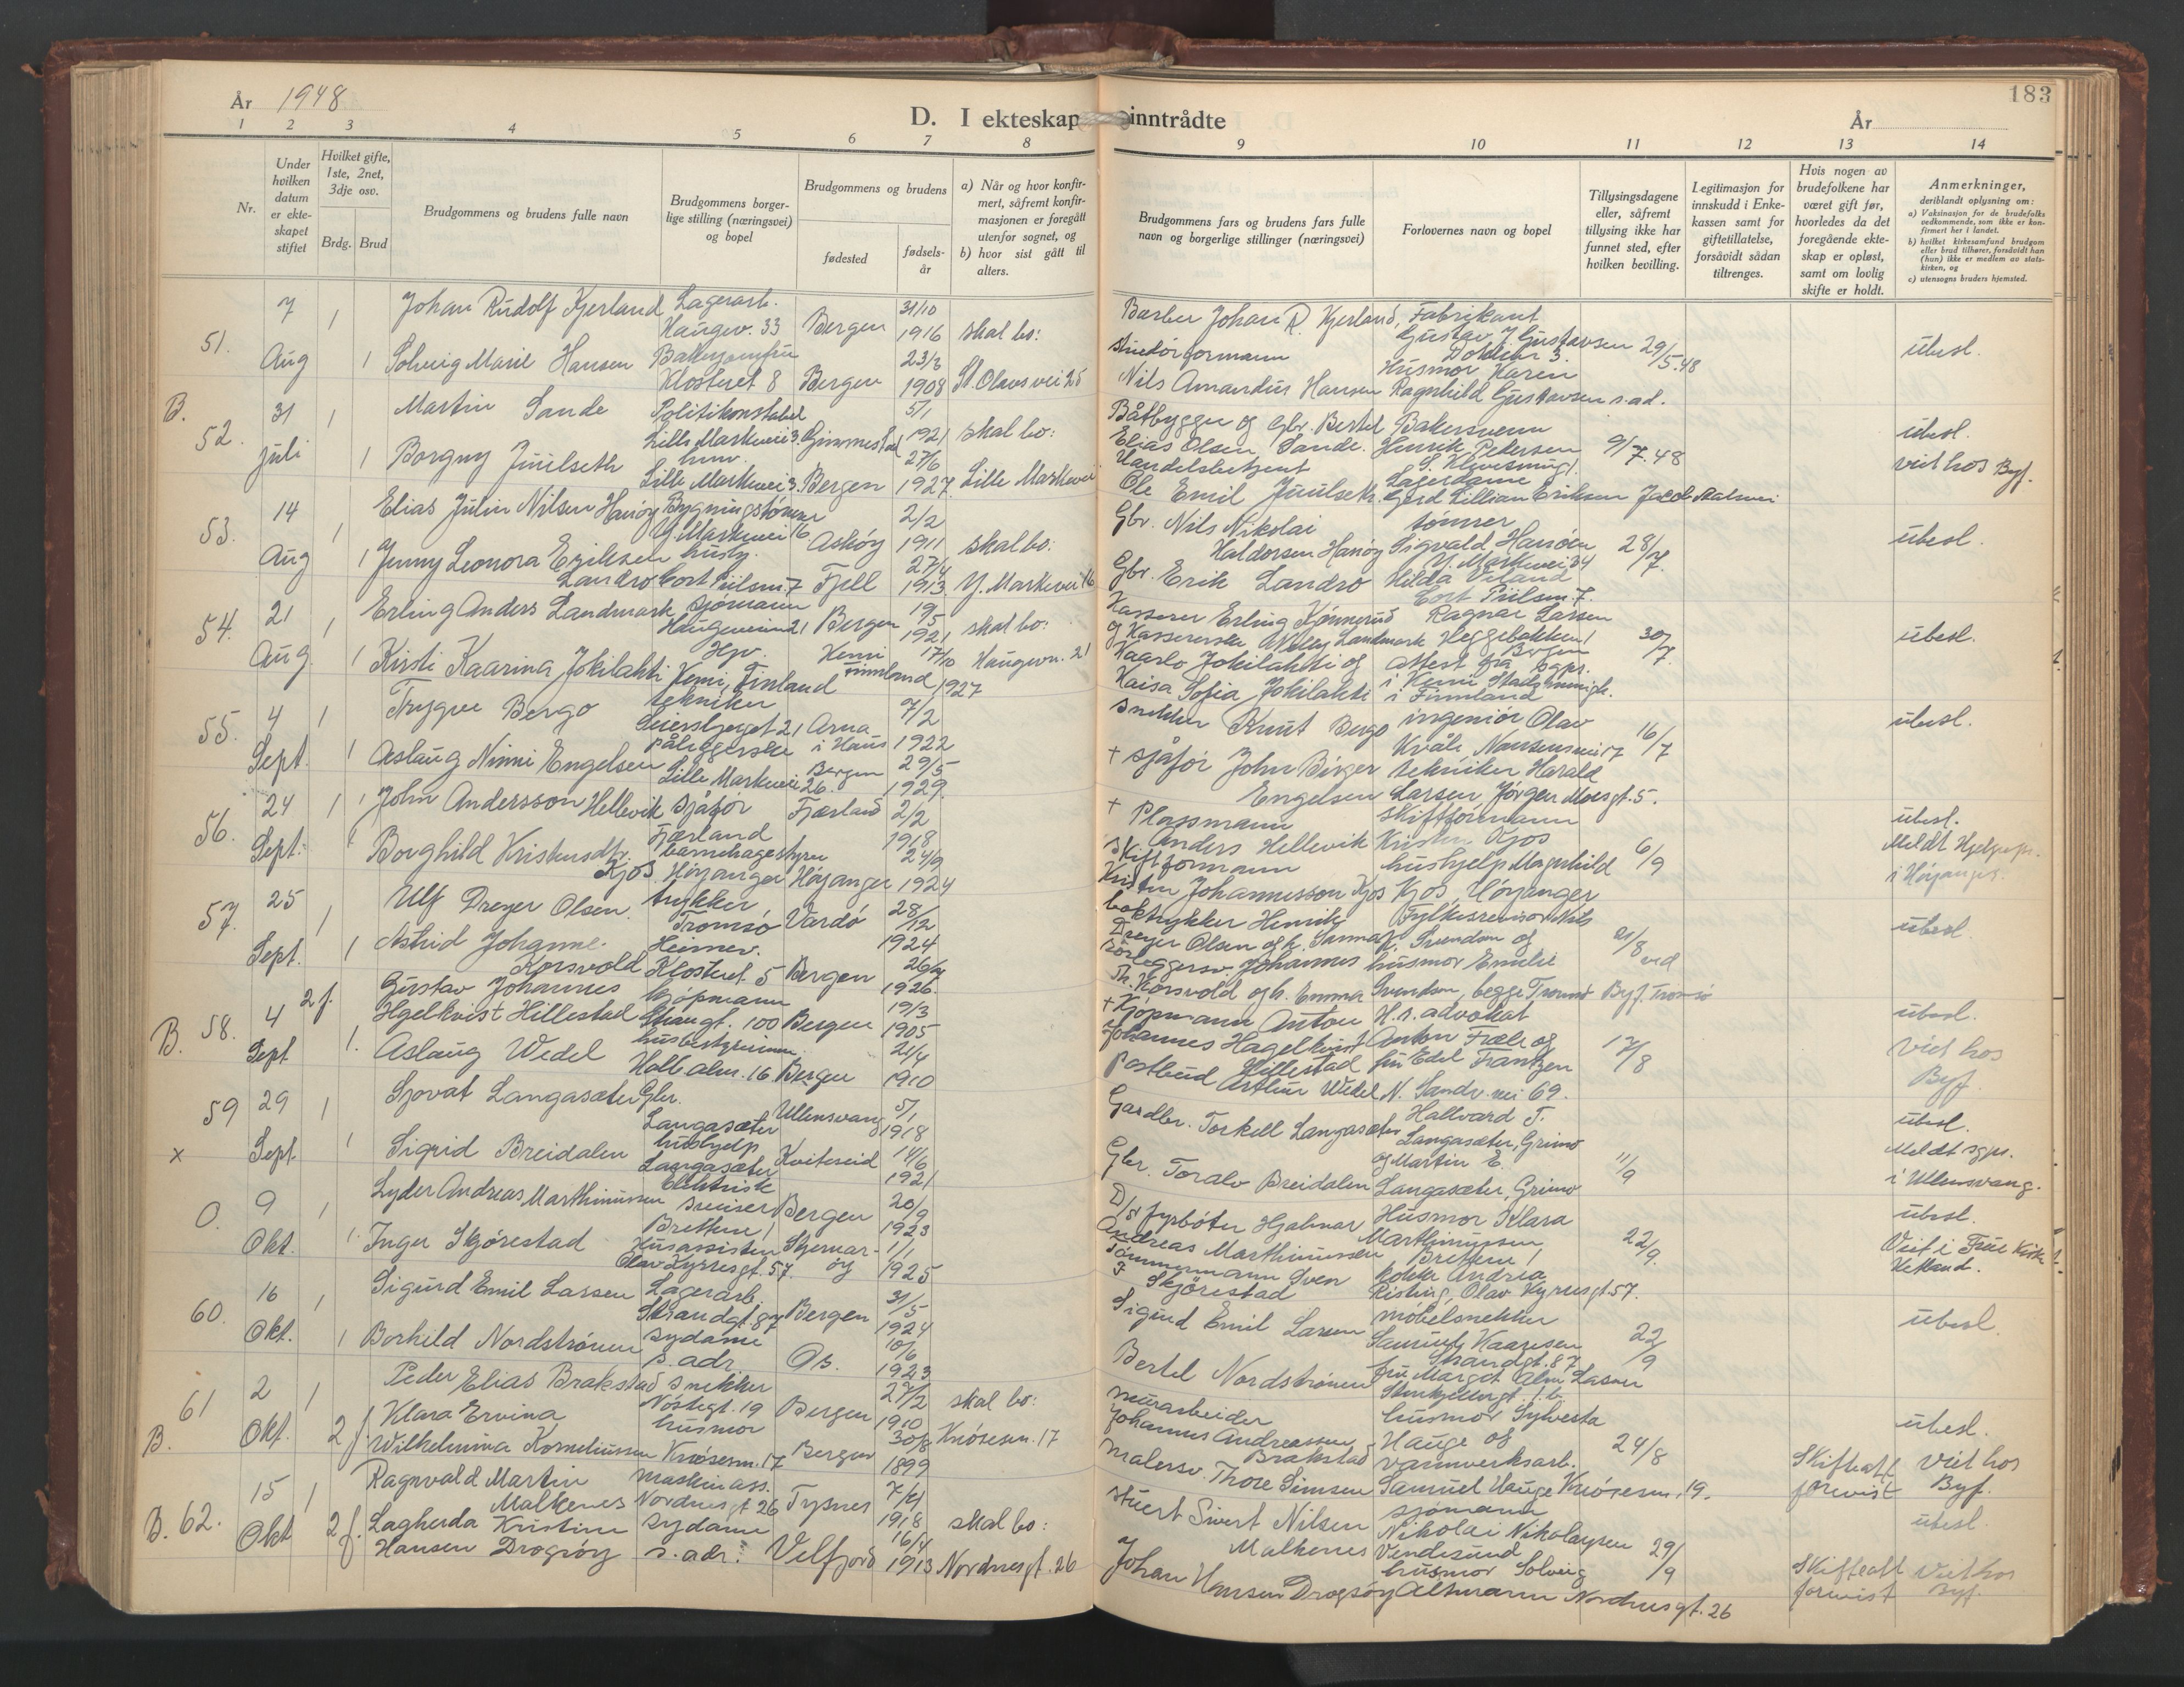 År 1948
D. I ekteskap inntrådte
År
183
1 2 3 4 5 6 7 8 9 10 11 12 13 14
Nr.
Under hvilken datum er ekteskapet stiftet
Hvilket gifte, 1ste, 2net, 3dje osv.
Brdg. Brud
Brudgommens og brudens fulle navn
Brudgommens borgerlige stilling (næringsvei) og bopel
Brudgommens og brudens
fødested
fødselsår
a) Når og hvor konfirmert, såfremt konfirmasjonen er foregått utenfor sognet, og
b) hvor sist gått til alters.
Brudgommens fars og brudens fars fulle navn og borgerlige stillinger (næringsvei)
Forlovernes navn og bopel
Tillysingsdagene eller, såfremt tillysing ikke har funnet sted, efter hvilken bevilling.
Legitimasjon for innskudd i Enkekassen samt for giftetillatelse, forsåvidt sådan tiltrenges.
Hvis nogen av brudefolkene har været gift før, hvorledes da det foregående ekteskap er opløst, samt om lovlig skifte er holdt.
Anmerkninger, deriblandt oplysning om:
a) Vaksinasjon for de brudefolks vedkommende, som ikke er konfirmert her i landet.
b) hvilket kirkesamfund brudgom eller brud tilhører, forsåvidt han (hun) ikke er medlem av statskirken, og
c) utensogns bruders hjemsted.
51. 7 Aug 1 Johan Rudolf Kjerland Lagerarb. Haugev. 33 Bergen 31/10 1916 skal bo:
Barber Johan R. Kjerland, Fabrikant Gustav J. Gustavsen 29/5.48 ubesl.
1 Solveig Marie Hansen Klosteret 8 Bergen 23/3 1908 St. Olavs vei 25
Nils Amandus Hansen Husmor Karen Ragnhild Gustavsen s. ad.
B. 52. 31 juli 1 Martin Sande Politikonstabel Lille Markevei 3. Gimmestad 5/1 1921 skal bo:
Båtbygger og Gbr. Bertel Elias Olsen Sande. Bakersvenn Henrik Pedersen 9/7.48 ubesl.
1 Borgny Juulseth Lille Markevei 3. Bergen 27/6 1927 Lille Markevei
Handelsbetjent Ole Emil Juulseth. Lagerdame Gerd Lillian Eriksen vid hos Byf.
53. 14 Aug 1 Elias Julin Nilsen Hanøy Bygningstømrer Y. Markevei 16 Askøy 2/2 1911 skal bo:
Gbr. Nils Nikolai Haldorsen Hanøy tømrer Sigvald Hanøen Y. Markevei 34 28/7. ubesl.
1 Jenny Leonora Eriksen Landro Cort Piilsm. 7 Fjell 27/4 1913 Y. Markevei 16
Gbr. Erik Landro Hilda Cort Piilsm. 7.
54. 21 Aug 1 Erling Anders Landmark sjømann Haugeveien 21 Bergen 19/5 1921 skal bo:
Kasserer Erling Kønnerud og Kassererske Landmark Ragnar Larsen Heggebakken 1 Bergen 30/7. ubesl.
1 Kirsti Kaarina Jokilahti Kemi, Finland Kemi Finnland 17/10 1927 Haugevn. 21
Kaarlo Jokilahti og Kaisa Sofia Jokilahti attest fra i Kemi i Finnland
55. 4 Sept. 1 Trygve Bergo tekniker 21 Arna i Haus 7/2 1922
snekker Knut Bergo ingeniør Olav Kvåle Nansens vei 17 16/7 ubesl.
1 Aslaug Ninni Engelsen påleggerske Lille Markevei 26. Bergen 29/5 1929.
+ sjåfør John Birger Engelsen tekniker Harald Larsen, Jørgen Moesgt. 5.
56. 24 Sept. 1 John Andersson Hellevik sjåfør Fjærland Fjærland 2/2 1918
+ Plassmann Anders Hellevik skiftformann Kristen Kjos 6/9 ubesl.
1 Borghild Kristensdtr. Kjos Høyanger Høyanger 24/9 1924
Skiftformann Kristen Johannesson Kjos hushjelp Magnhild Kjos, Høyanger Meldt i Høyanger.
57. 25 Sept. 1 Ulf Dreyer Olsen. trykker Tromsø Vardø 28/12 1924
boktrykker Henrik Dreyer Olsen Fylkesrevisor Nils Svendsen og 21/8 ved Byf. Tromsø ubesl.
1 Astrid Johanne Korsvold Heimev. Klosteret 5 Bergen 1926.
Johannes Th. Korsvold og h. Emma husmor Emelie Svendsen, begge Tromsø
B. 58. 4 Sept 2 f. Gustav Johannes Hgelkvist Hillestad kjøpmann Strangt. 100 Bergen 19/3 1905
+ Kjøpmann Anton Johannes Hagelkvist Hillestad H. r. advokat Anton Fræle og 17/8 ubesl.
1. Aslaug Wedel husbestyrerinne Halle alm. 16 Bergen 21/4 1910
Postbud Arthur Wedel fru Edel Frantzen N. Sandv. vei 69. Vid hos Byf.
59 29 Sept. 1 Sjovat Langasæter Gbr. Langasæter Ullensvang 5/1 1918
Gardbr. Torkell Langasæter Hallvard T. Langasæter, Grimo 11/9 ubesl.
x 1 Sigrid Breidalen hushjelp Langasæter Kviteseid 14/6 1921
Gbr. Toralv Breidalen og Martin E. Langasæter, Grimo Meldt sgpr. i Ullensvang.
0. 9 Okt. 1 Lyder Andreas Marthinussen Elektrisk sveiser Bergen 20/9 1923
D/s fyrbøter Hjalmar Andreas Marthinussen Husmor Klara Marthinussen 22/9. ubesl.
1. Inger Skjørestad Husassistent Olav Kyrresgt. 57. Stjernarøy 1/1 1925
Tømmermann Sven Skjørestad kokke Andrea Risting, Olav Kyrresgt 57. Viet i Frue Kirke Hetland.
60. 16 Okt. 1 Sigurd Emil Larsen Lagerarb. Strandgt. 87 Bergen 31/5 1924
Sigurd Emil Larsen møbelsnekker Samuel Kaaresen Strandgt. 87 22/9 ubesl.
1 Borhild Nordstrønen sydame s. adr. Os. 10/6 1923
Bertel Nordstrønen fru Margit Larsen
61 2 Okt. 1 Peder Elias Brakstad snekker Nøstegt. 19 Bergen 27/2 1910 skal bo:
murarbeider Johannes Andreassen Brakstad husmor Sylvesta Hauge og 24/8 ubesl.
B. 2 f. Klara Ervina Wilhelmina Korneliussen husmor Knøsesm. 17 Bergen 30/8 1899 Knøsesm. 17
Malersv. Thore Simsen varmverksarb. Samuel Hauge Knøsesm. 19. Skifteatt forevist Viet hos Byf.
B. 62. 15 Okt 1 Ragnvald Martin Malkenes maskinass. Nordnesgt 26 Tysnes 7/4 1918 skal bo:
stuert Sivert Nilsen Malkenes sjømann Nikolai Nikolaysen Vendesund 29/9 ubesl
2 f. Lagherda Kristine Hansen Drogsøy sydame s. adr. Velfjord 16/4 1913 Nordnesgt. 26
Johan Hansen Drogsøy husmor Solveig Altmann Nordnesgt. 26 Skifteatt forevist Viet hos Byf.